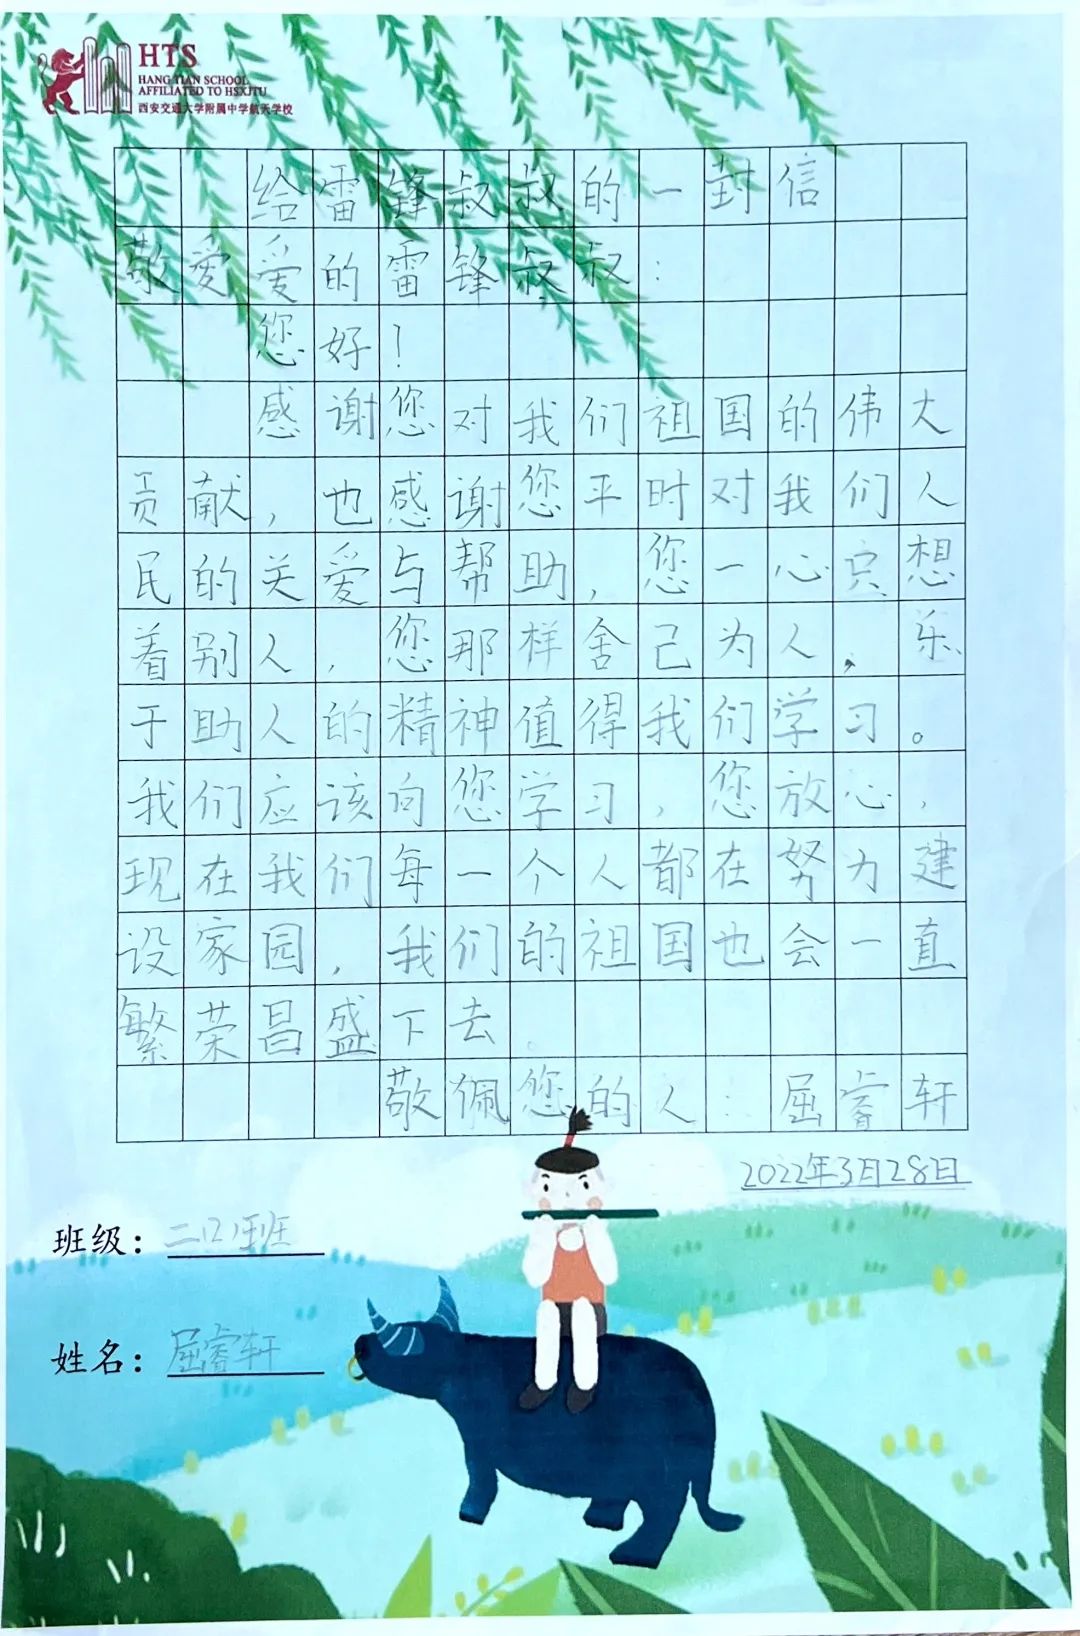 HTS
HANG TIAN SCHOOL
AFFILIATED TO HSXJTU
西安交通大学附属中学航天学校
给雷锋叔叔的一封信
敬爱爱的雷锋叔叔：
您好！
感谢您对我们祖国的伟大
贡献，也感谢您平时对我们人
民的关爱与帮助，您一心只想
着别人，您那样舍己为人，乐
于助人的精神值得我们学习。
我们应该向您学习，您放心，
现在我们每一个人都在努力建
设家园，我们的祖国也会一直
繁荣昌盛下去。
敬佩您的人：屈睿轩
2022年3月28日
班级：
姓名：屈睿轩